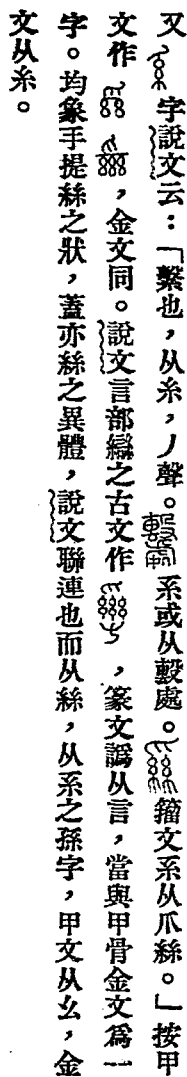 又字說文云：「繫也，从糸，丿聲。系或从毄處。籀文系从爪絲。」按甲
文作，金文同。說文言部䜌之古文作，篆文譌从言，當與甲骨金文爲一
字。均象手提絲之狀，蓋亦絲之異體，說文聯連也而从絲，从系之孫字，甲文从幺，金
文从糸。